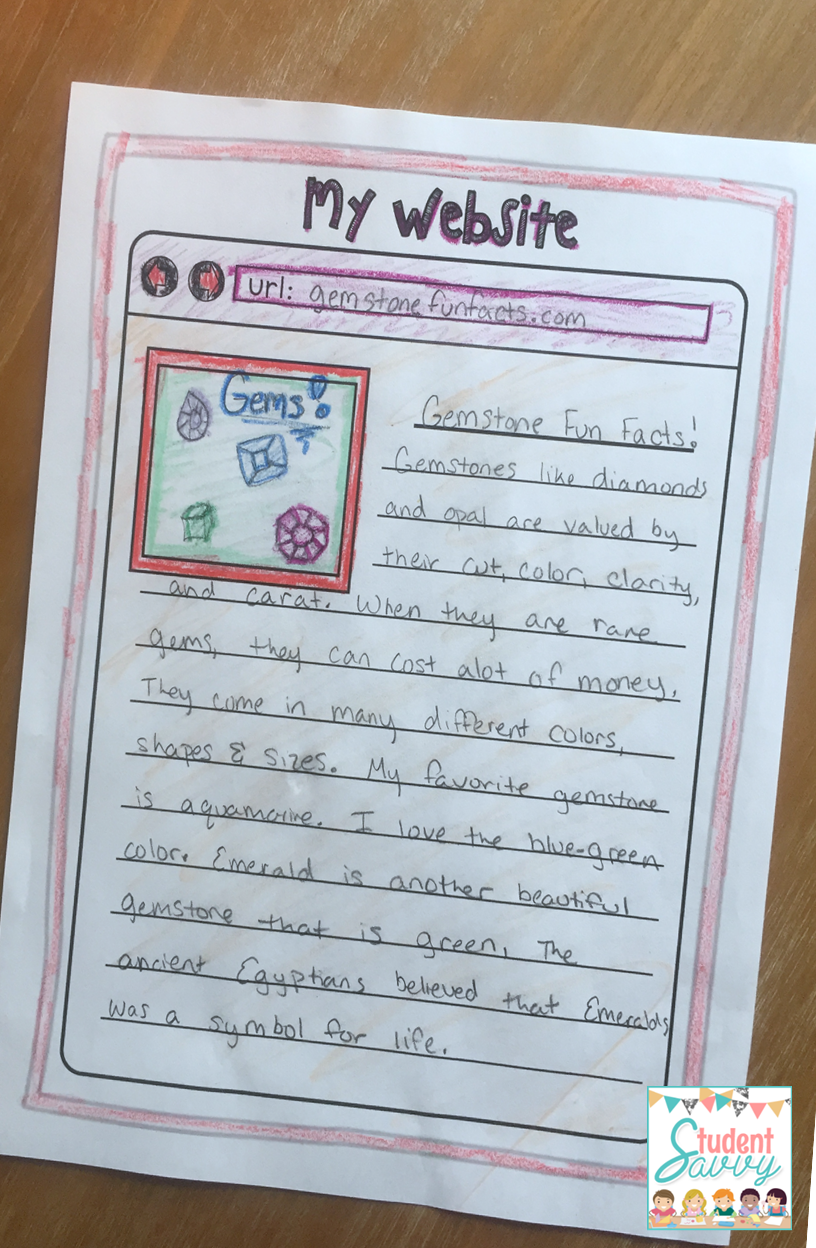 My Website
url: gemstonefunfacts.com
Gems!
Gemstone Fun Facts!
Gemstones like diamonds
and opal are valued by
their cut, color, clarity,
and carat. When they are rare
gems, they can cost alot of money.
They come in many different colors,
shapes & sizes. My favorite gemstone
is aquamarine. I love the blue-green
color. Emerald is another beautiful
gemstone that is green. The
ancient Egyptians believed that Emeralds
was a symbol for life.
Student
Savvy